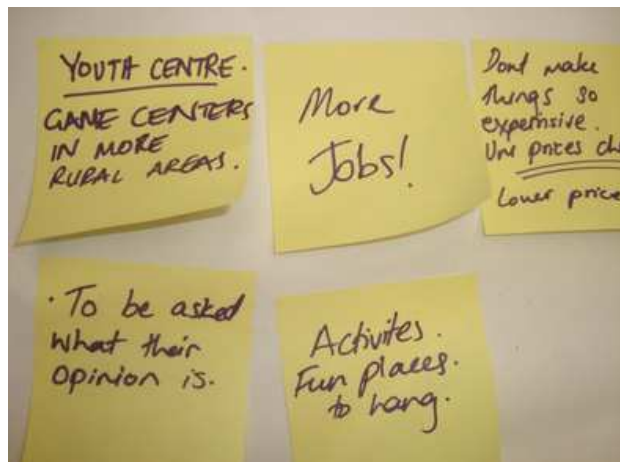 YOUTH CENTRE.
GAME CENTERS
IN MORE
RURAL AREAS.
More
Jobs!
Dont make
things so
expensive.
prices
Lower price
· To be asked
what their
opinion is.
Activites.
Fun places.
to hang.